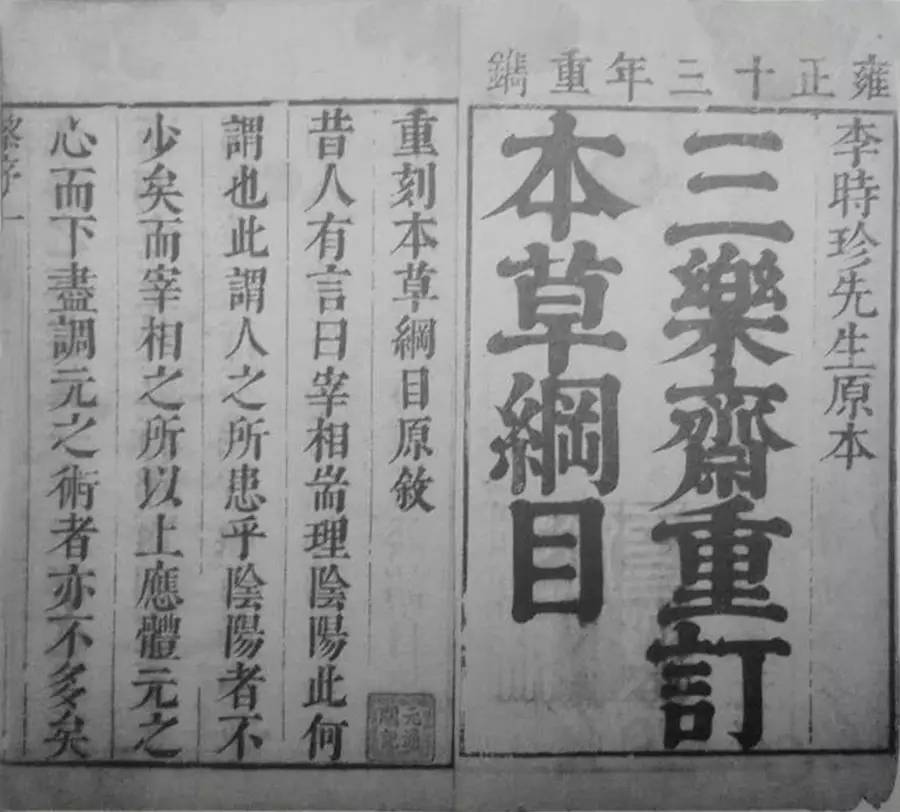 雍正十三年重鐫
李時珍先生原本
三樂齋重訂
本草綱目
重刻本草綱目原敘
昔人有言曰宰相耑理陰陽此何
謂也此謂人之所患乎陰陽者不
少矣而宰相之所以上應體元之
心而下盡調元之術者亦不多矣
序一